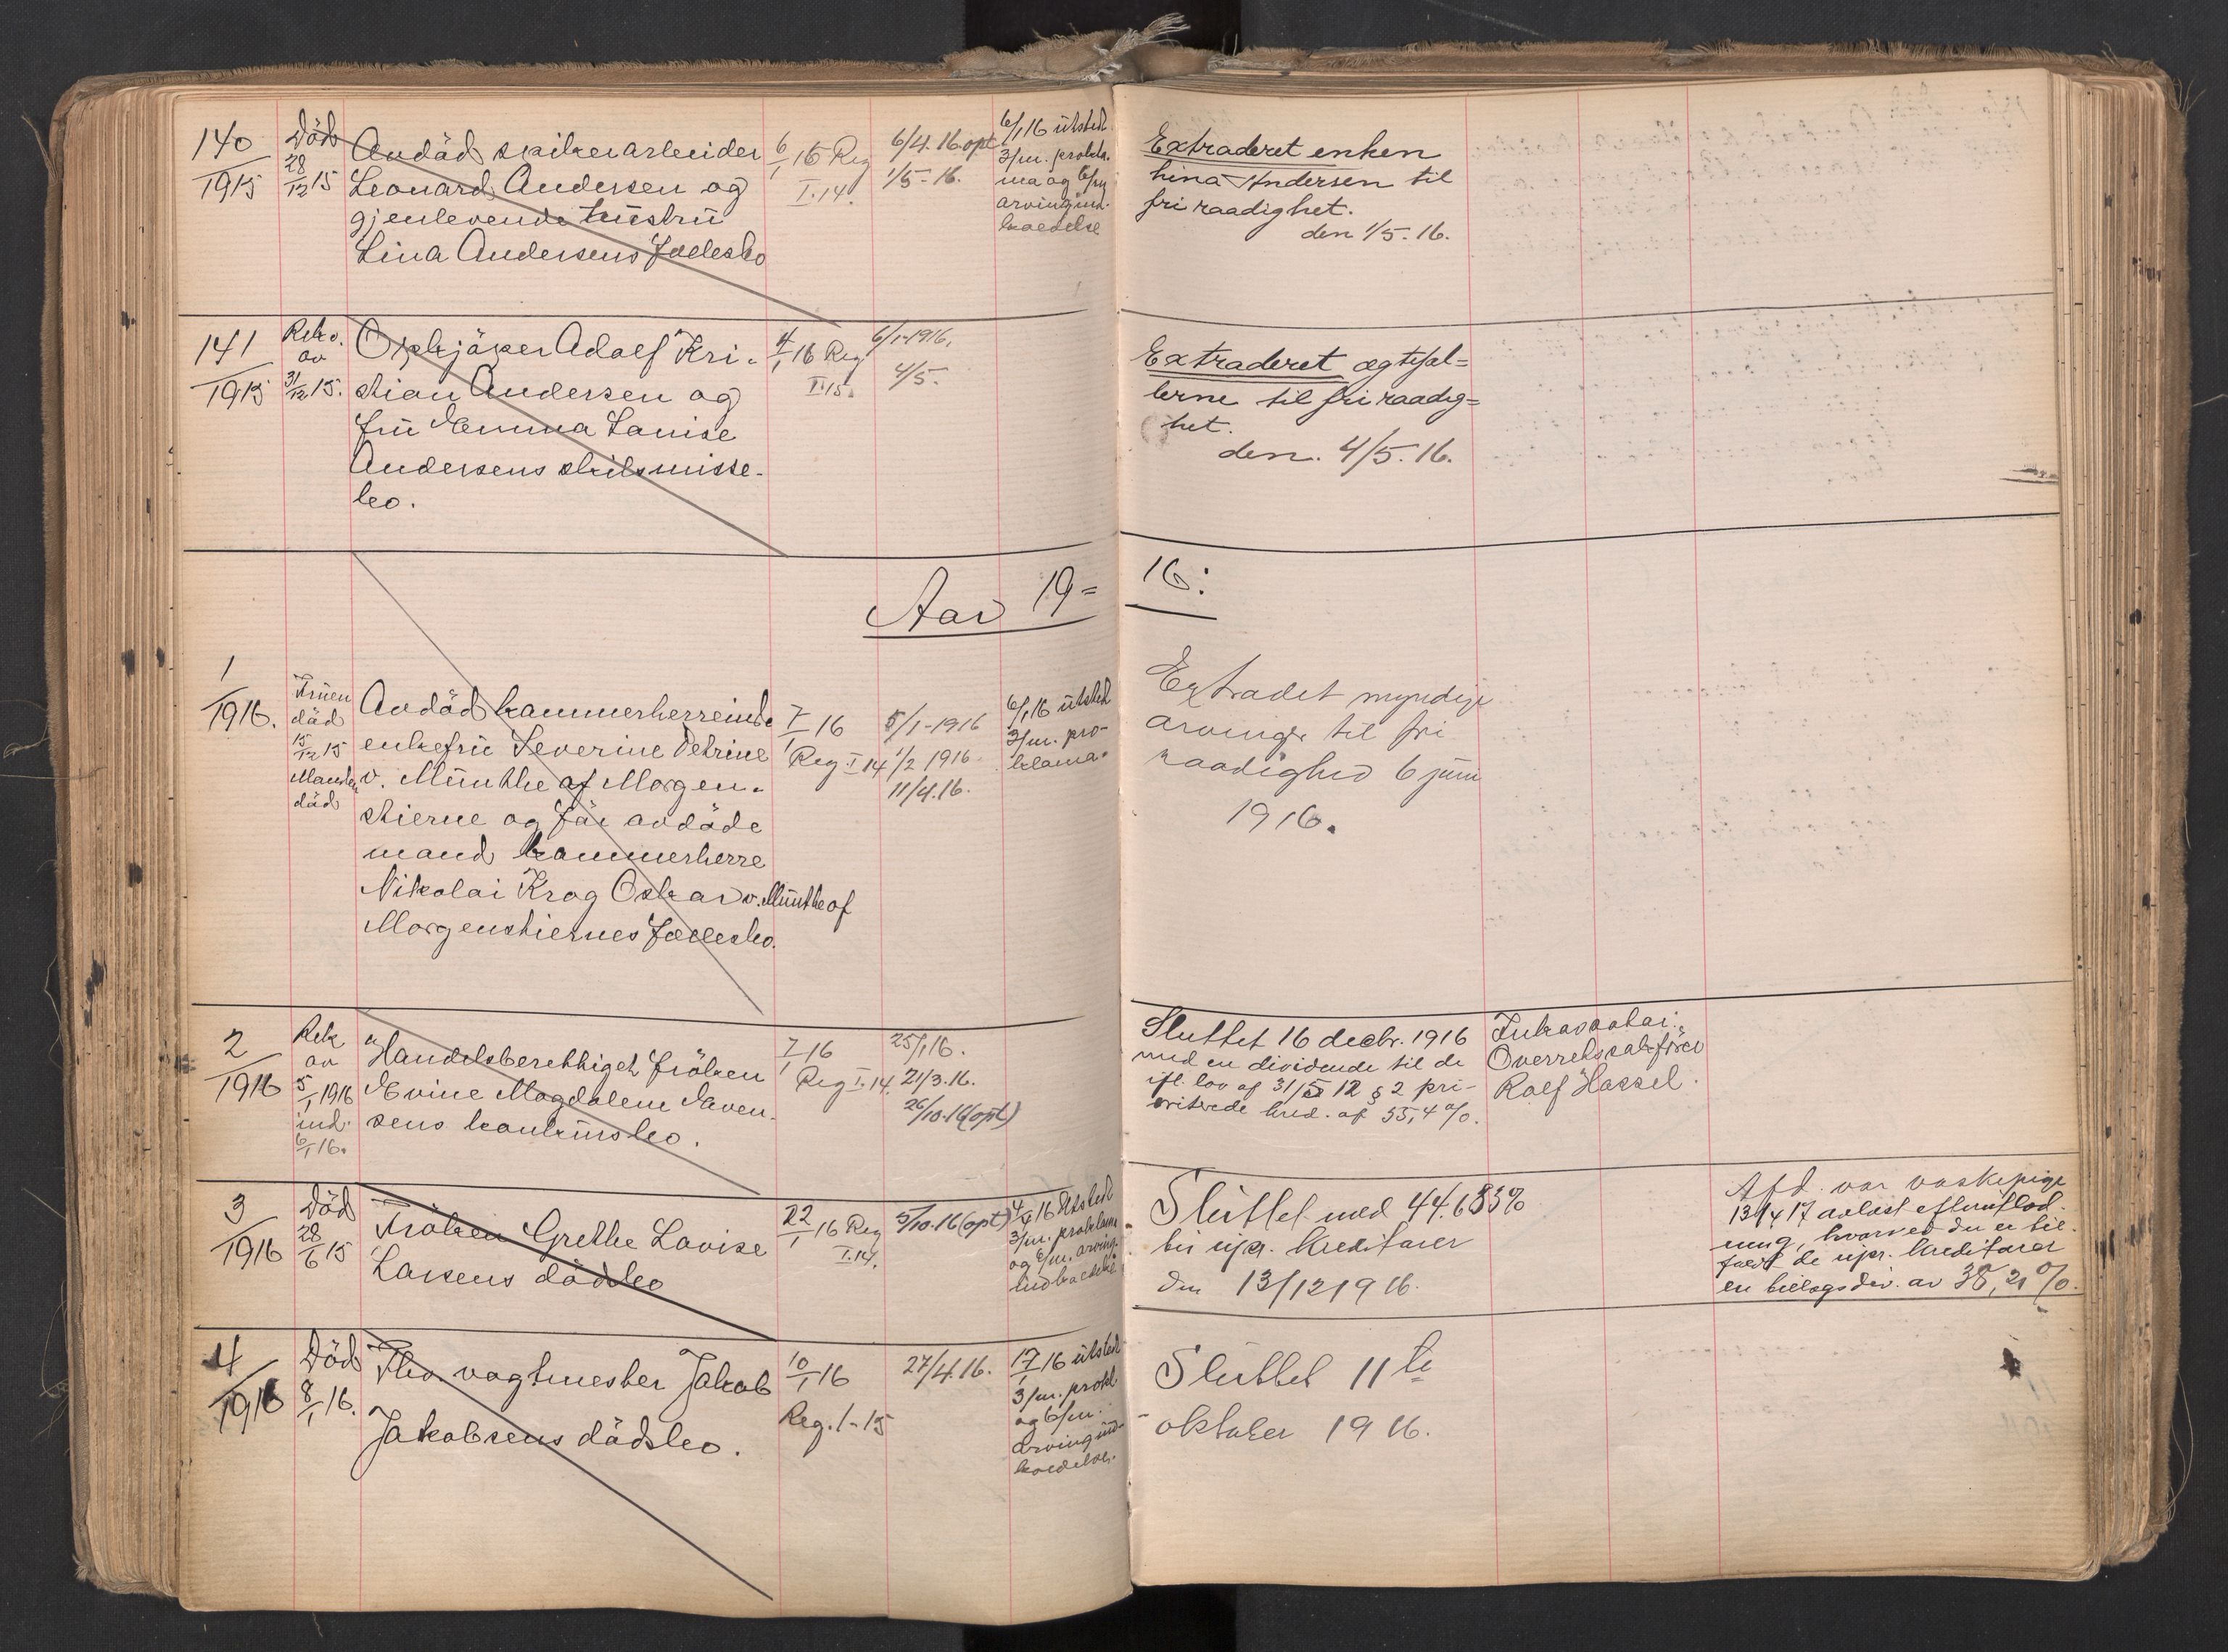 140
1915
Död
28/12 15
Avdöd spikerarbeider
Leonard Andersen og
gjenlevende hustrü
Lina Andersens fællesbo
6/1 16 Reg
I. 14.
6/4.16 opt
1/5-16.
6/1 16 ütstedt
3/m. prokla-
ma og 6/m
arving ind-
kaldelse
Extraderet enken
Lina Andersen til
fri raadighet.
den 1/5.16.
141
1915
Rekv.
av
31/12 15.
Opkjöper Adolf Kri-
stian Andersen og
frü Emma Lovise
Andersens skilsmisse-
bo.
4/1 16 Reg
I. 15.
6/1-1916.
4/5.
Extraderet ægtefæl=
lerne til fri raadig=
het.
den. 4/5.16.
Aar 19= 16:
1
1916.
Früen
död
15/12 15
Manden
död
Avdöd kammerherreinde
enkefrü Severine Petrine
v. Münthe af Morgen-
stierne og för avdöde
mand kammerherre
Nikolai Krog Oskar v. Münthe af
Morgenstiernes fællesbo.
7/1 16
Reg. I 14
5/1-1916
1/2 1916.
11/4.16.
6/1 16 ütstedt
3/m. pro-
klama.
Extradet myndige
arvinger til fri
raadighed 6 juni
1916.
2
1916
Rek
av
5/1 1916
ind.
6/1 16.
Handelsberettiget fröken
Evine Magdalene Svven-
sens konkürsbo.
7/1 16
Reg I. 14.
25/1 16.
21/3.16.
26/10.16 (opt)
Sluttet 16 decbr. 1916
med en dividende til de
ifl. lov af 31/5 12 § 2 pri-
oriterede kred. af 55,4 %.
Inkavaktar:
Overretssakfører
Rolf Hassel.
3
1916
Död
28/6 15
Fröken Grethe Lovise
Larsens dödsbo
22/1 16 Reg
I. 14.
5/10.16 (opt)
4/4 16 Utstedt
3/m. proklama
og 6/m. arving-
indkaldelse
Slüttet med 44.683%
til upr. kreditorer
den 13/12 1916.
Afd. var vaskepige
13/4 17 avlæst efterütlod-
ning, hvorved der er til-
faldt de upr. kreditorer
en tillægsdiv. av 38,21 %.
4
1916
Död
8/1 16.
Fhv. vagtmester Jakob
Jakobsens dödsbo.
10/1 16
Reg. 1-15
27/4.16.
17/1 16 ütstedt
3/m. prokl.
og 6/m.
arving ind-
kaldelse.
Slüttet 11te
oktober 1916.